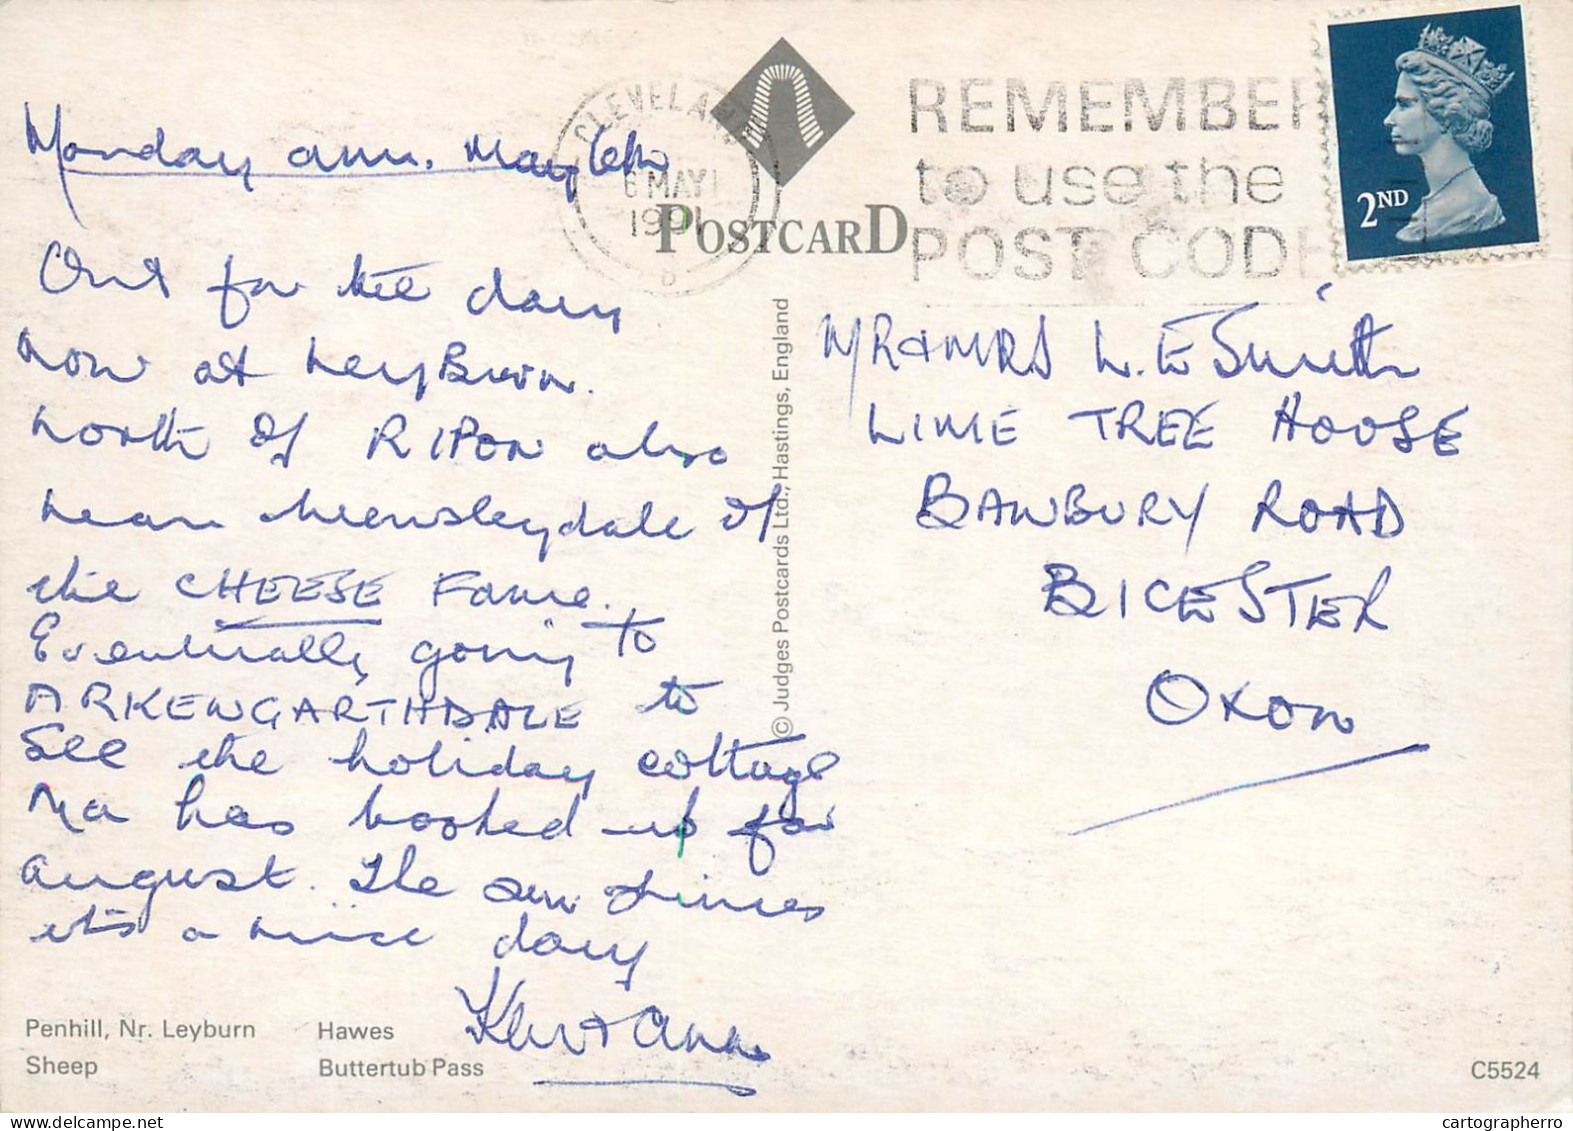 Monday am. May 6th
Out for the day
now at LeyBurn.
North of RIPON also
near Wensleydale of
the CHEESE Fame.
Eventually going to
ARKENGARTHDALE to
See the holiday cottage
Ma has booked up for
August. The sun shines
it's a nice day
Kev + Ann
Penhill, Nr. Leyburn
Hawes
Sheep
Buttertub Pass
CLEVELAND
6 MAY
1991
POSTCARD
© Judges Postcards Ltd., Hastings, England
REMEMBER
to use the
POST CODE
2ND
MR & MRS L. E Smith
LIME TREE HOUSE
BANBURY ROAD
BICESTER
Oxon
C5524
cartographerro